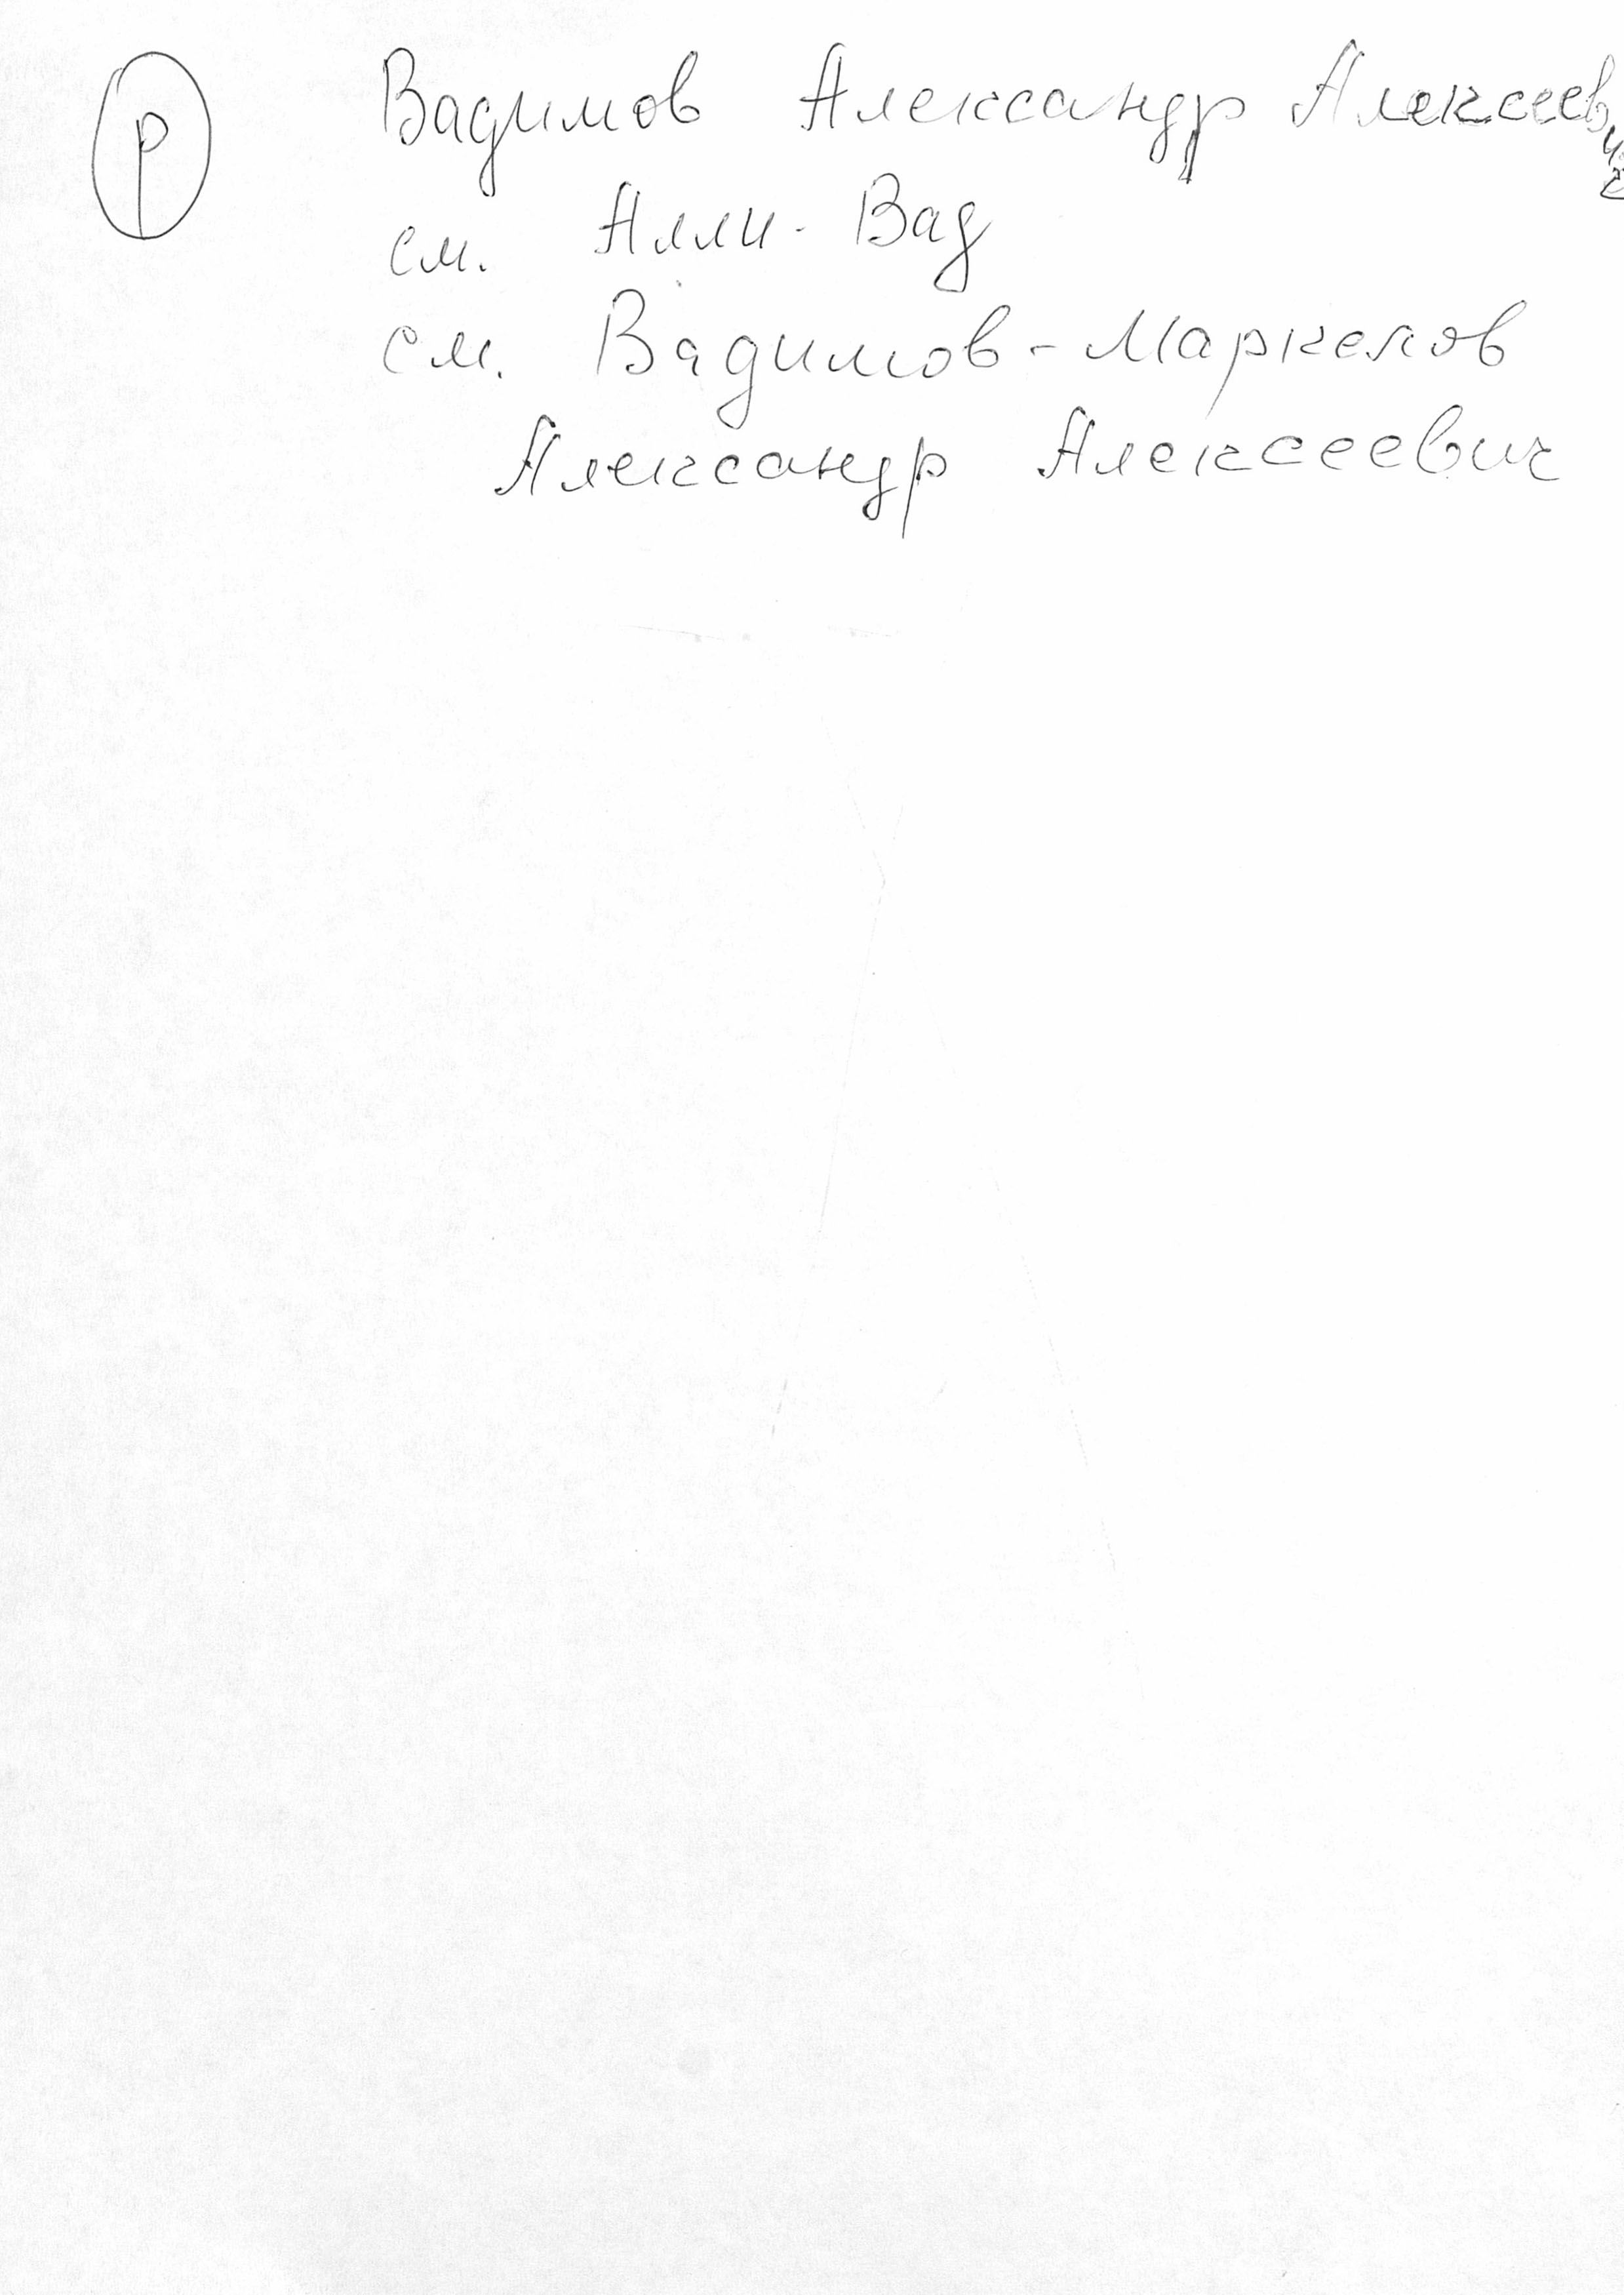 р Вадимов Александр Алексеевич
см. Алли-Вад
см. Вадимов-Маркелов
Александр Алексеевич